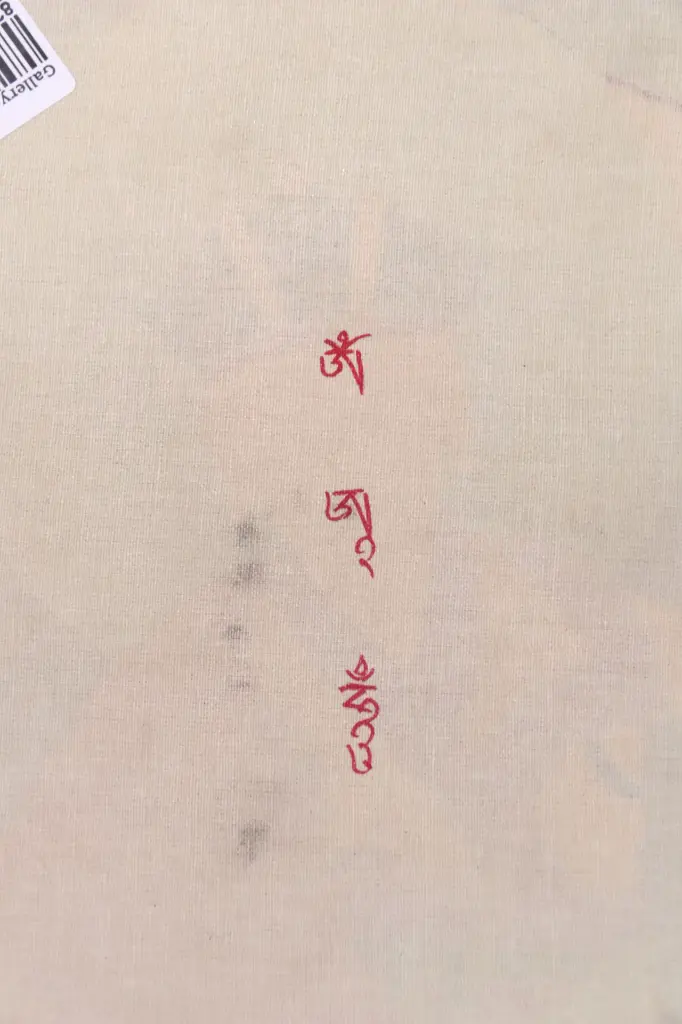 Gallery
ཨོཾ
ཨཱ
ཧཱུྃ